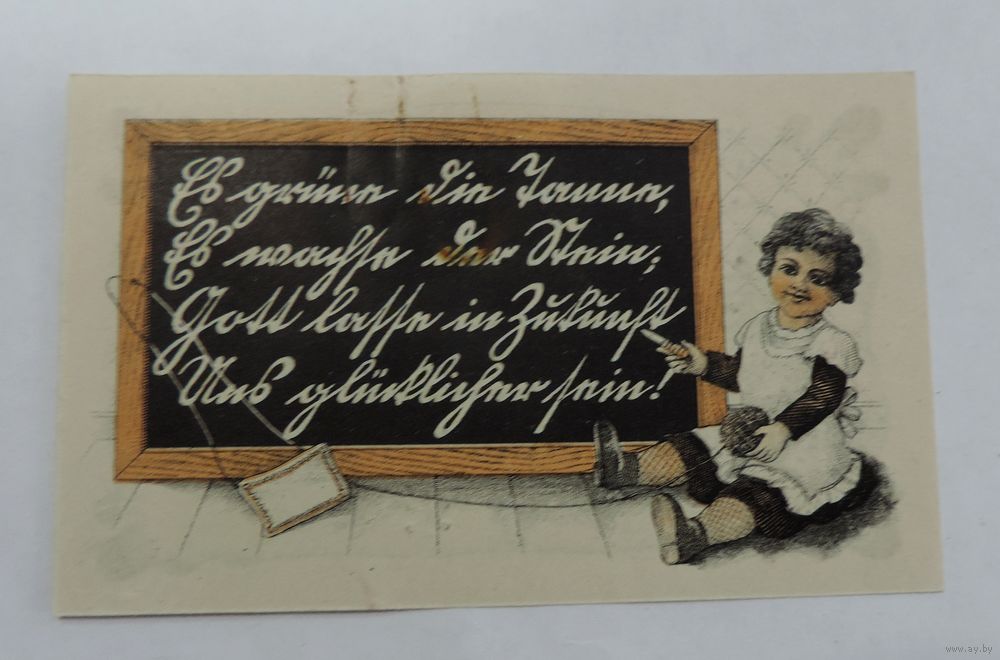 Es grüne die Tanne,
Es wachse der Stein;
Gott lasse in Zukunft
Uns glücklicher sein!
www.ay.by